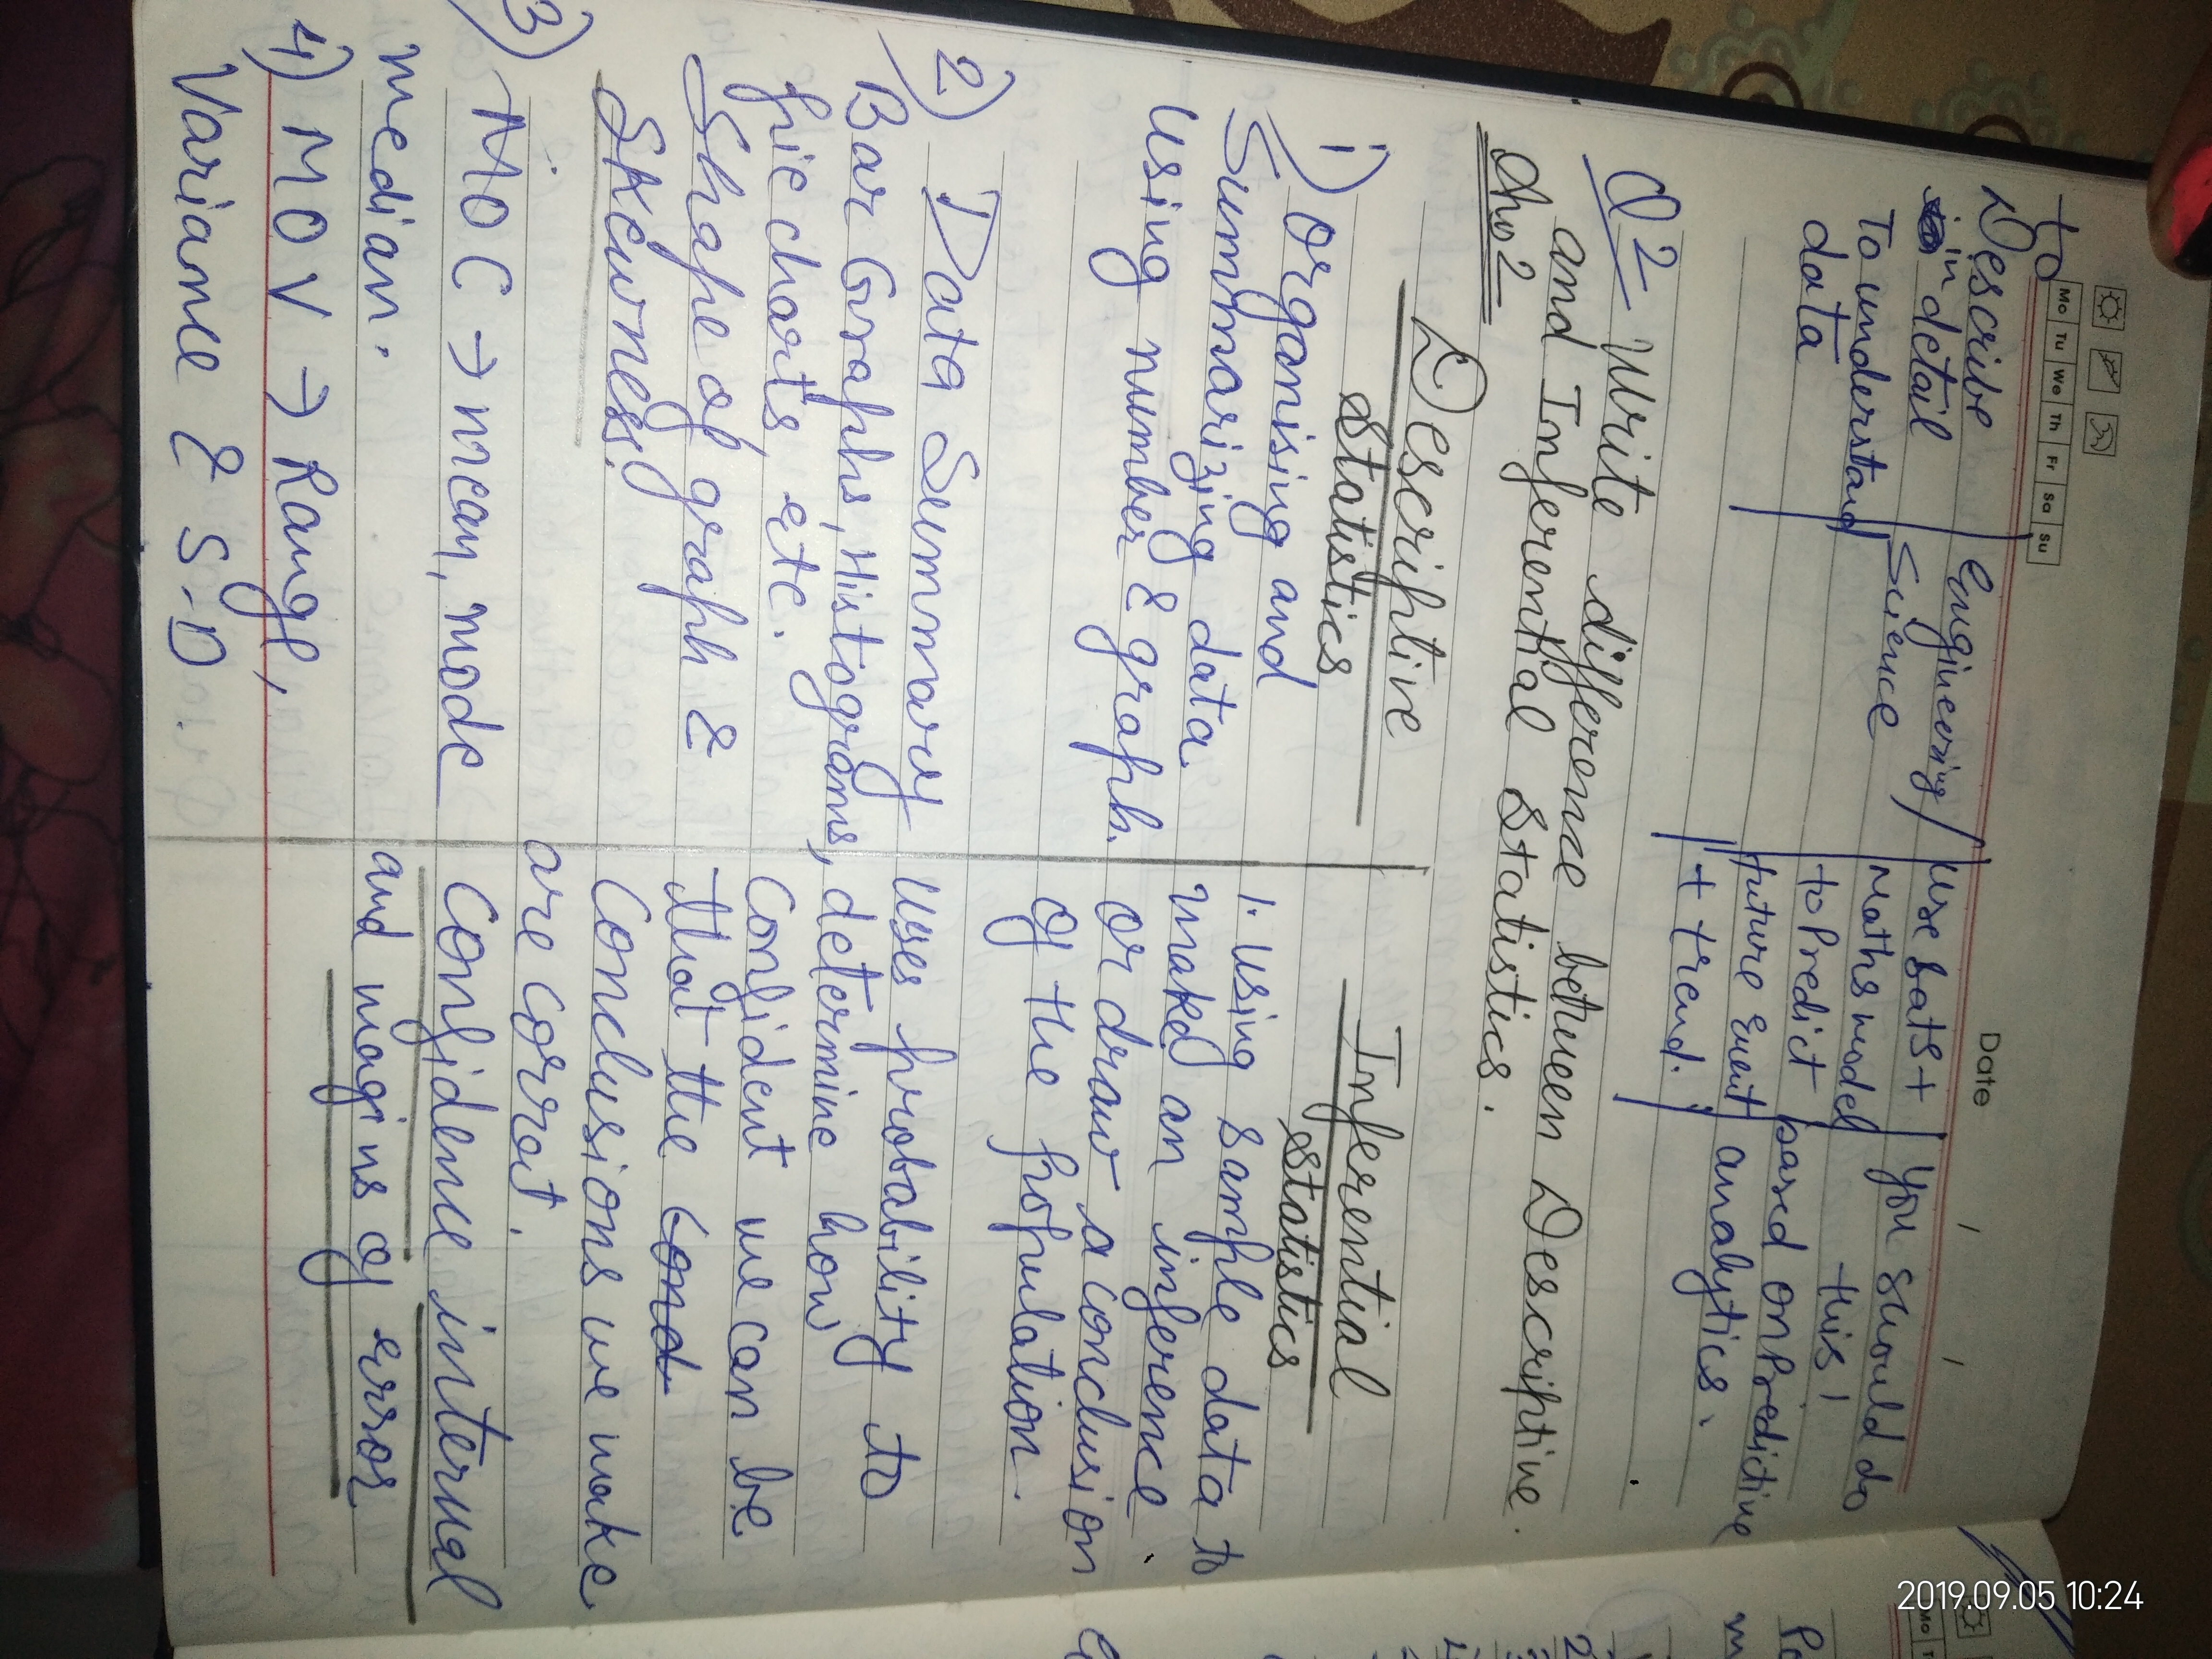 Mo Tu We Th Fr Sa Su
Date / /
to
Describe
in detail
To understand
data
Engineering/
Science
Use sats +
Maths model
to Predict
future event
+ trend.
You should do
this!
based on Predictive
analytics.
Q2 - Write difference between Descriptive
and Inferential Statistics.
Descriptive
Statistics
Inferential
Statistics
1) Organising and
Summarizing data
Using number & graph.
1. Using sample data to
maked an inference
or draw a conclusion
of the population.
2) Data Summary
Bar Graphs, Histograms,
Pie charts, etc.
Shape of graph &
Skewness.
Uses probability to
determine how
Confident we can be
that the Cond
Conclusions we make
are corrot.
3) MOC → mean, mode
median.
Confidence internal
and magins of error
4) MOV → Range,
Variance & S.D
2019.09.05 10:24